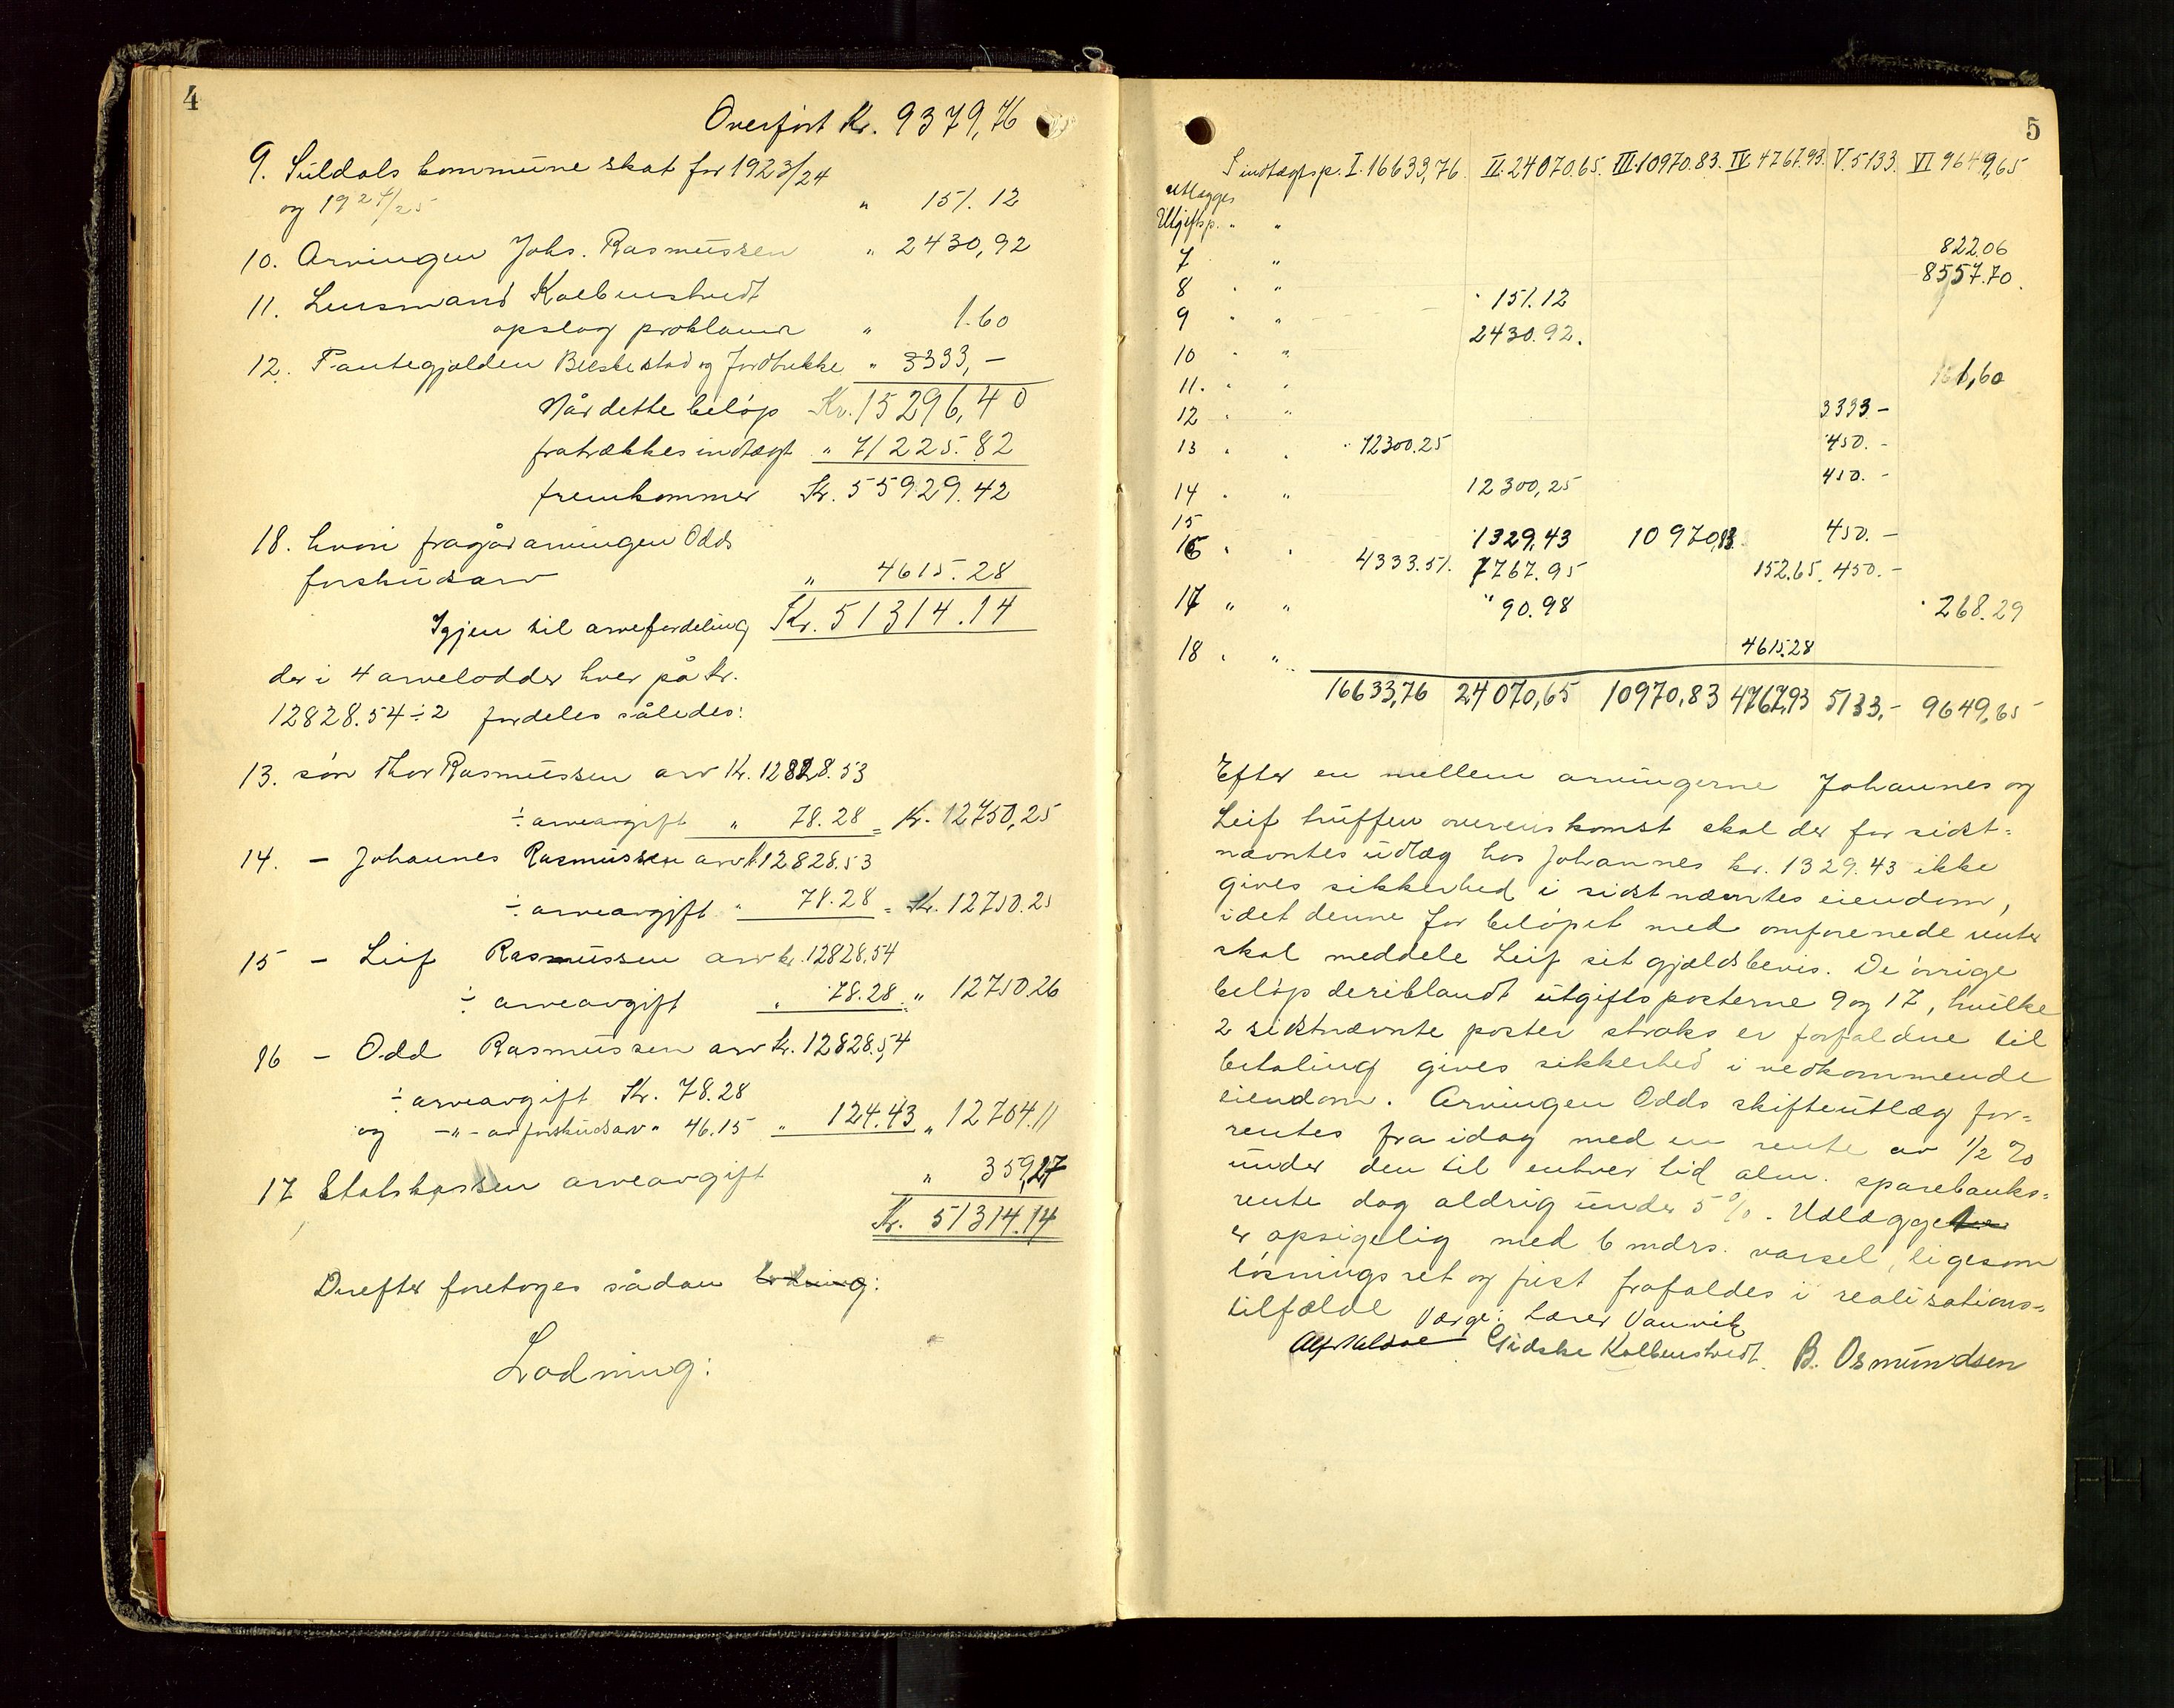 4
Overført Kr. 9379,76
9. Suldals kommune skat for 1923/24
og 1924/25 " 151.12
10. Arvingen Johs. Rasmussen " 2430,92
11. Lensmand Kolbenstvedt
opslag proklama " 1.60
12. Pantegjælden Birkeland og Jordbrekke " 3333,-
Når dette beløp Kr. 15296,40
fratrækkes indtægt " 71225.82
fremkommer Kr. 55929.42
18. hvori fragår arvingen Odds
forskudsarv " 4615.28
Igjen til arvefordeling Kr. 51314.14
der i 4 arvelodder hver på kr.
12828.54 ÷ 2 fordeles således:
13. søn Thor Rasmussen arv Kr. 12828.53
÷ arveavgift " 78.28 = Kr. 12750,25
14. — Johannes Rasmussen arv k 12828.53
÷ arveavgift " 78.28 = Kr. 12750.25
15 — Leif Rasmussen arv kr. 12828.54
÷ arveavgift " 78.28 = " 12750.26
16 — Odd Rasmussen arv kr. 12828.54
÷ arveavgift Kr. 78.28
og —"— av forskudsarv " 46.15 " 124.43 " 12704.11
17 Statskassen arveavgift " 359,27
Kr. 51314.14
Derefter foretoges sådan lodning:
Lodning:
5
S indtægtsp. I. 16633,76. II. 24070.65. III. 10970.83. IV 4767.93. V. 5133. VI 9649,65
utlægges
Utgiftsp. " "
7 " 822.06
8 " " 8557.70.
9 " " 151.12
10 " " 2430.92.
11. " " 1,60
12 " " 3333-
13 " " 12300.25 450.-
14 " " 12300,25 450.-
15 1329,43 10970,83 450.-
16 " " 4333.51. 7767.95 152.65. 450.-
17 " " " 90.98 268.29
18 " " 4615.28
16633,76 24070,65 10970,83 4767,93 5133,- 9649,65
Efter en mellem arvingerne Johannes og
Leif truffen overenskomst skal der for sidst-
nævntes utlæg hos Johannes kr. 1329.43 ikke
gives sikkerhed i sidstnævntes eiendom,
idet denne for beløpet med omforenede renter
skal meddele Leif sit gjældsbevis. De øvrige
beløp deriblandt utgiftsposterne 9 og 17, hvilke
2 sidstnævnte poster straks er forfaldne til
betaling gives sikkerhed i vedkommende
eiendom. Arvingen Odds skifteutlæg for-
rentes fra idag med en rente av 1/2 %
under den til enhver tid alm. sparebanks-
rente dog aldrig under 5 %. Utlægget
er opsigelig med 6 mdrs. varsel, ligesom
løsningsret og frist frafaldes i realisations-
tilfælde Værge: Lærer Vanvik
Gidske Kolbenstvedt. B. Osmundsen